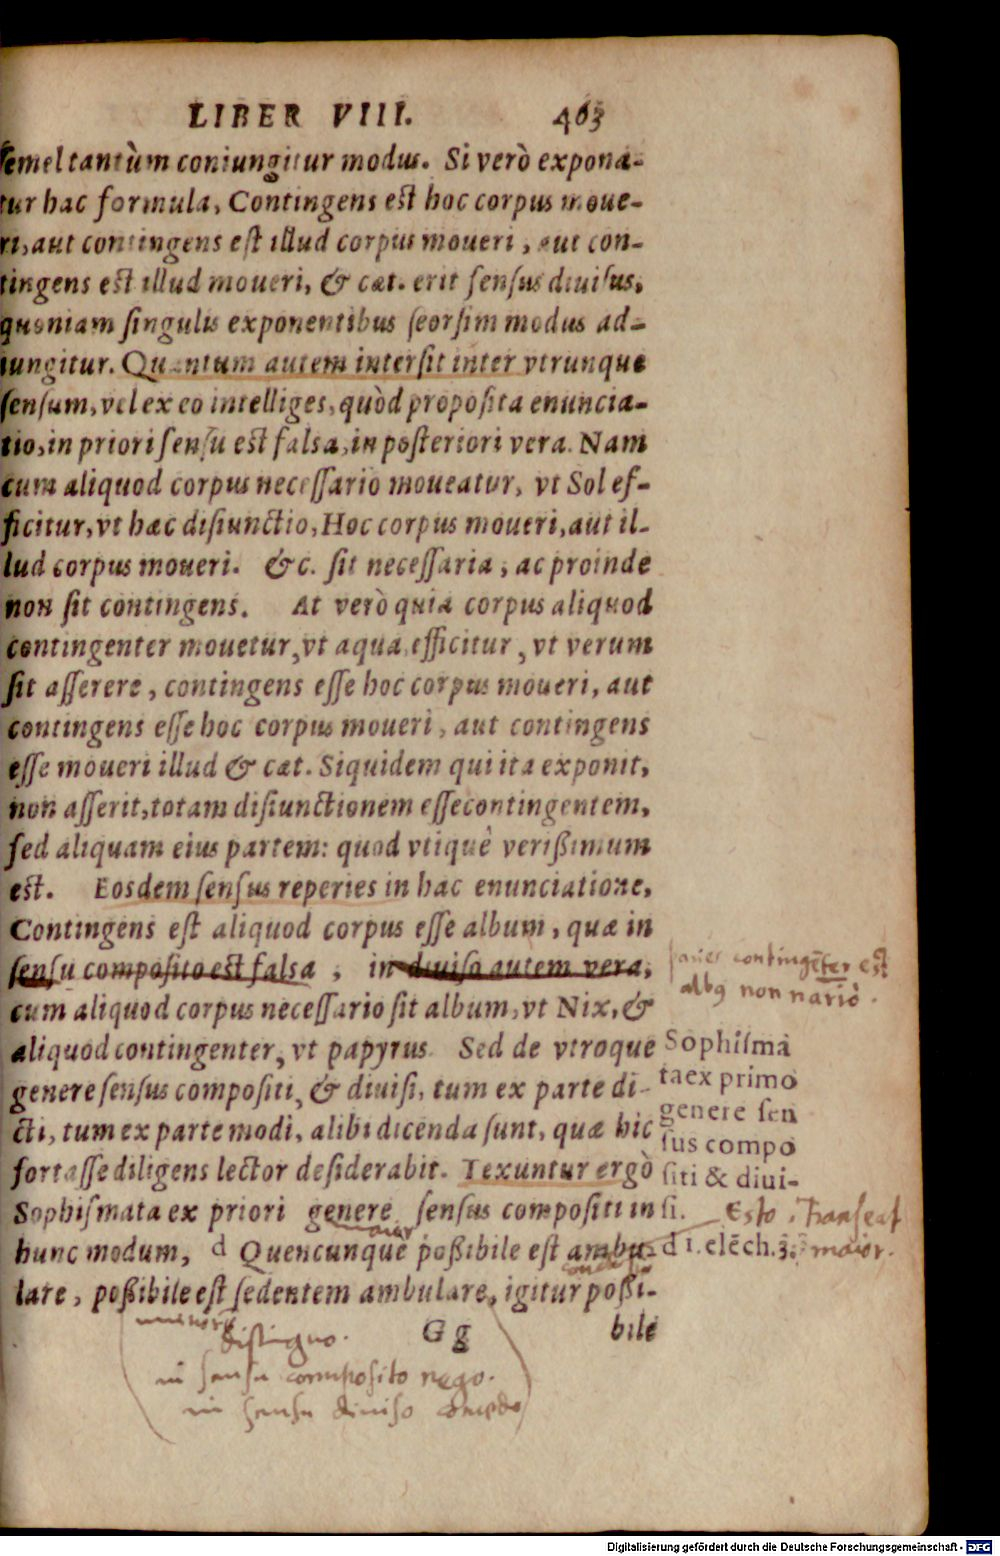 LIBER VIII. 463
semel tantùm coniungitur modus. Si verò expona-
tur hac formula, Contingens est hoc corpus moue-
ri, aut contingens est illud corpus moueri, aut con-
tingens est illud moueri, & cæt. erit sensus diuisus,
quoniam singulis exponentibus seorsim modus ad-
iungitur. Quantum autem intersit inter vtrunque
sensum, vel ex eo intelliges, quòd proposita enuncia-
tio, in priori sensu est falsa, in posteriori vera. Nam
cum aliquod corpus necessario moueatur, vt Sol ef-
ficitur, vt hæc disiunctio, Hoc corpus moueri, aut il-
lud corpus moueri. &c. sit necessaria, ac proinde
non sit contingens. At verò quia corpus aliquod
contingenter mouetur, vt aqua, efficitur, vt verum
sit asserere, contingens esse hoc corpus moueri, aut
contingens esse hoc corpus moueri, aut contingens
esse moueri illud & cæt. Siquidem qui ita exponit,
non asserit, totam disiunctionem esse contingentem,
sed aliquam eius partem: quod vtiquè verißimum
est. Eosdem sensus reperies in hac enunciatione,
Contingens est aliquod corpus esse album, quæ in
sensu composito est falsa, in diuiso autem vera,
cum aliquod corpus necessario sit album, vt Nix, &
aliquod contingenter, vt papyrus. Sed de vtroque
genere sensus compositi, & diuisi, tum ex parte di-
cti, tum ex parte modi, alibi dicenda sunt, quæ hic
fortasse diligens lector desiderabit. Texuntur ergò
Sophismata ex priori genere sensus compositi in
hunc modum, d Quencunque poßibile est ambu-
maior
late, poßibile est sedentem ambulare, igitur poßi-
Gg bile
contingēter est
albꝰ non nariò.
Sophisma
ta ex primo
genere sen
sus compo
siti & diui-
si.
d 1. elēch. 3.
Esto, Transeat
maior.
distinguo.
in sensu composito nego.
in sensu diuiso concedo
Digitalisierung gefördert durch die Deutsche Forschungsgemeinschaft - DFG